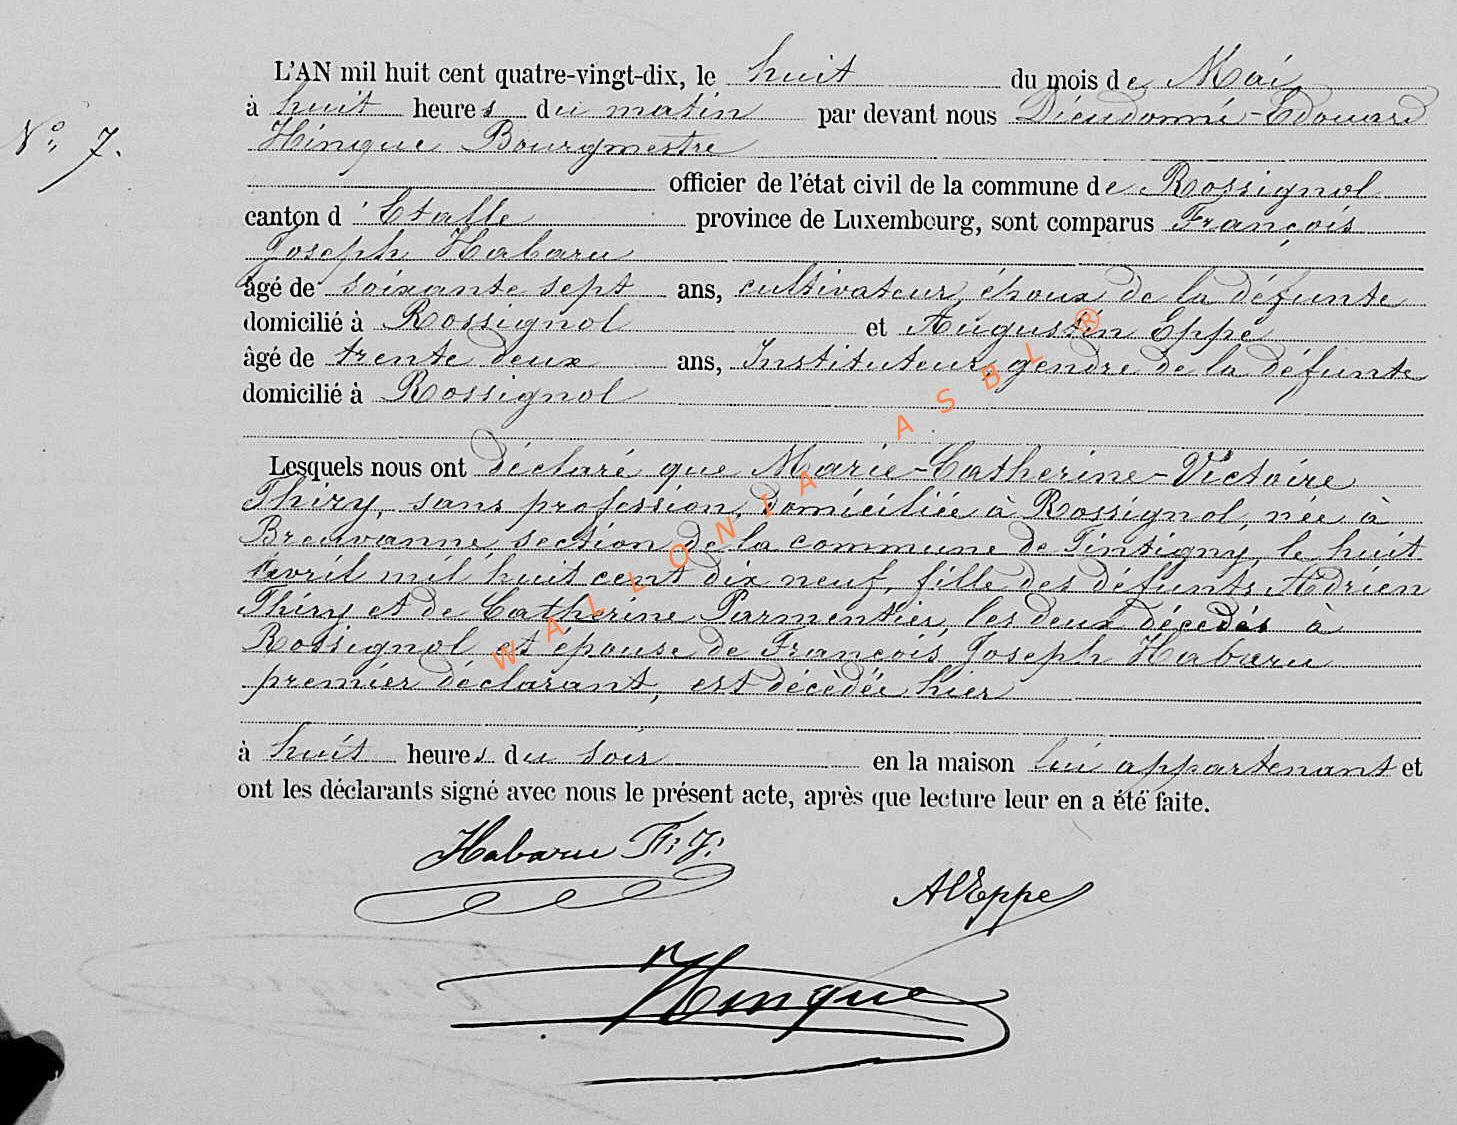 L'AN mil huit cent quatre-vingt-dix, le huit du mois de Mai
à huit heures du matin par devant nous Dieudonné-Edouard
N° 7.
Hinque Bourgmestre
officier de l'état civil de la commune de Rossignol
canton d'Etalle province de Luxembourg, sont comparus François
Joseph Habaru
âgé de soixante sept ans, cultivateur, époux de la défunte
domicilié à Rossignol et Augustin Eppe
âgé de trente deux ans, Instituteur, gendre de la défunte
domicilié à Rossignol
Lesquels nous ont déclaré que Marie-Catherine-Victoire
Thiry, sans profession, domiciliée à Rossignol, née à
Breuvanne, section de la commune de Tintigny, le huit
avril mil huit cent dix neuf, fille des défunts Adrien
Thiry et de Catherine Parmentier, les deux décedés à
Rossignol et épouse de François Joseph Habaru
premier déclarant, est décèdée hier
à huit heures du soir en la maison lui appartenant et
ont les déclarants signé avec nous le présent acte, après que lecture leur en a été faite.
Habaru F. J.
A Eppe
Hinque
WALLONIA ASBL ®